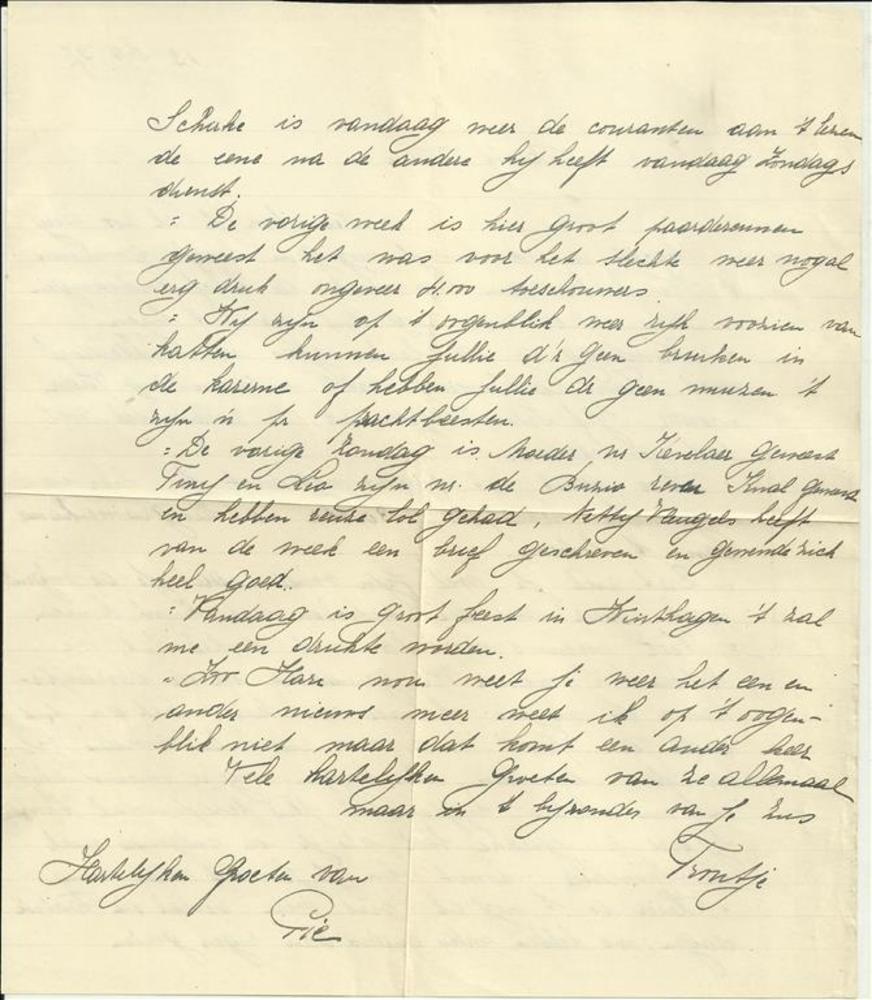 is vandaag weer de couranten aan 't lezen
de eene na de andere hij heeft vandaag Zondags
dienst.
= De vorige week is hier groot paarderennen
geweest het was voor het slechte weer nogal
erg druk ongeveer toeschouwers
= Wij zijn op 't oogenblik weer rijk voorzien van
katten kunnen jullie d'r geen bruiken in
de kazerne of hebben jullie dr geen muizen 't
zijn 'n pr prachtbeesten.
= De vorige Zondag is Moeder nr Kevelaer geweest
Tiny en Lea zijn nr. de geweest
en hebben reuze lol gehad, Netty heeft
van de week een brief geschreven en gewende zich
heel goed.
= Vandaag is groot feest in 't zal
me een drukte worden.
= Zoo nou weet je weer het een en
ander nieuws meer weet ik op 't oogen-
blik niet maar dat komt een ander keer
Vele hartelijken Groeten van ze allemaal
maar in 't bijzonder van je zus
Truutje
Hartelijken Groeten van
Pie